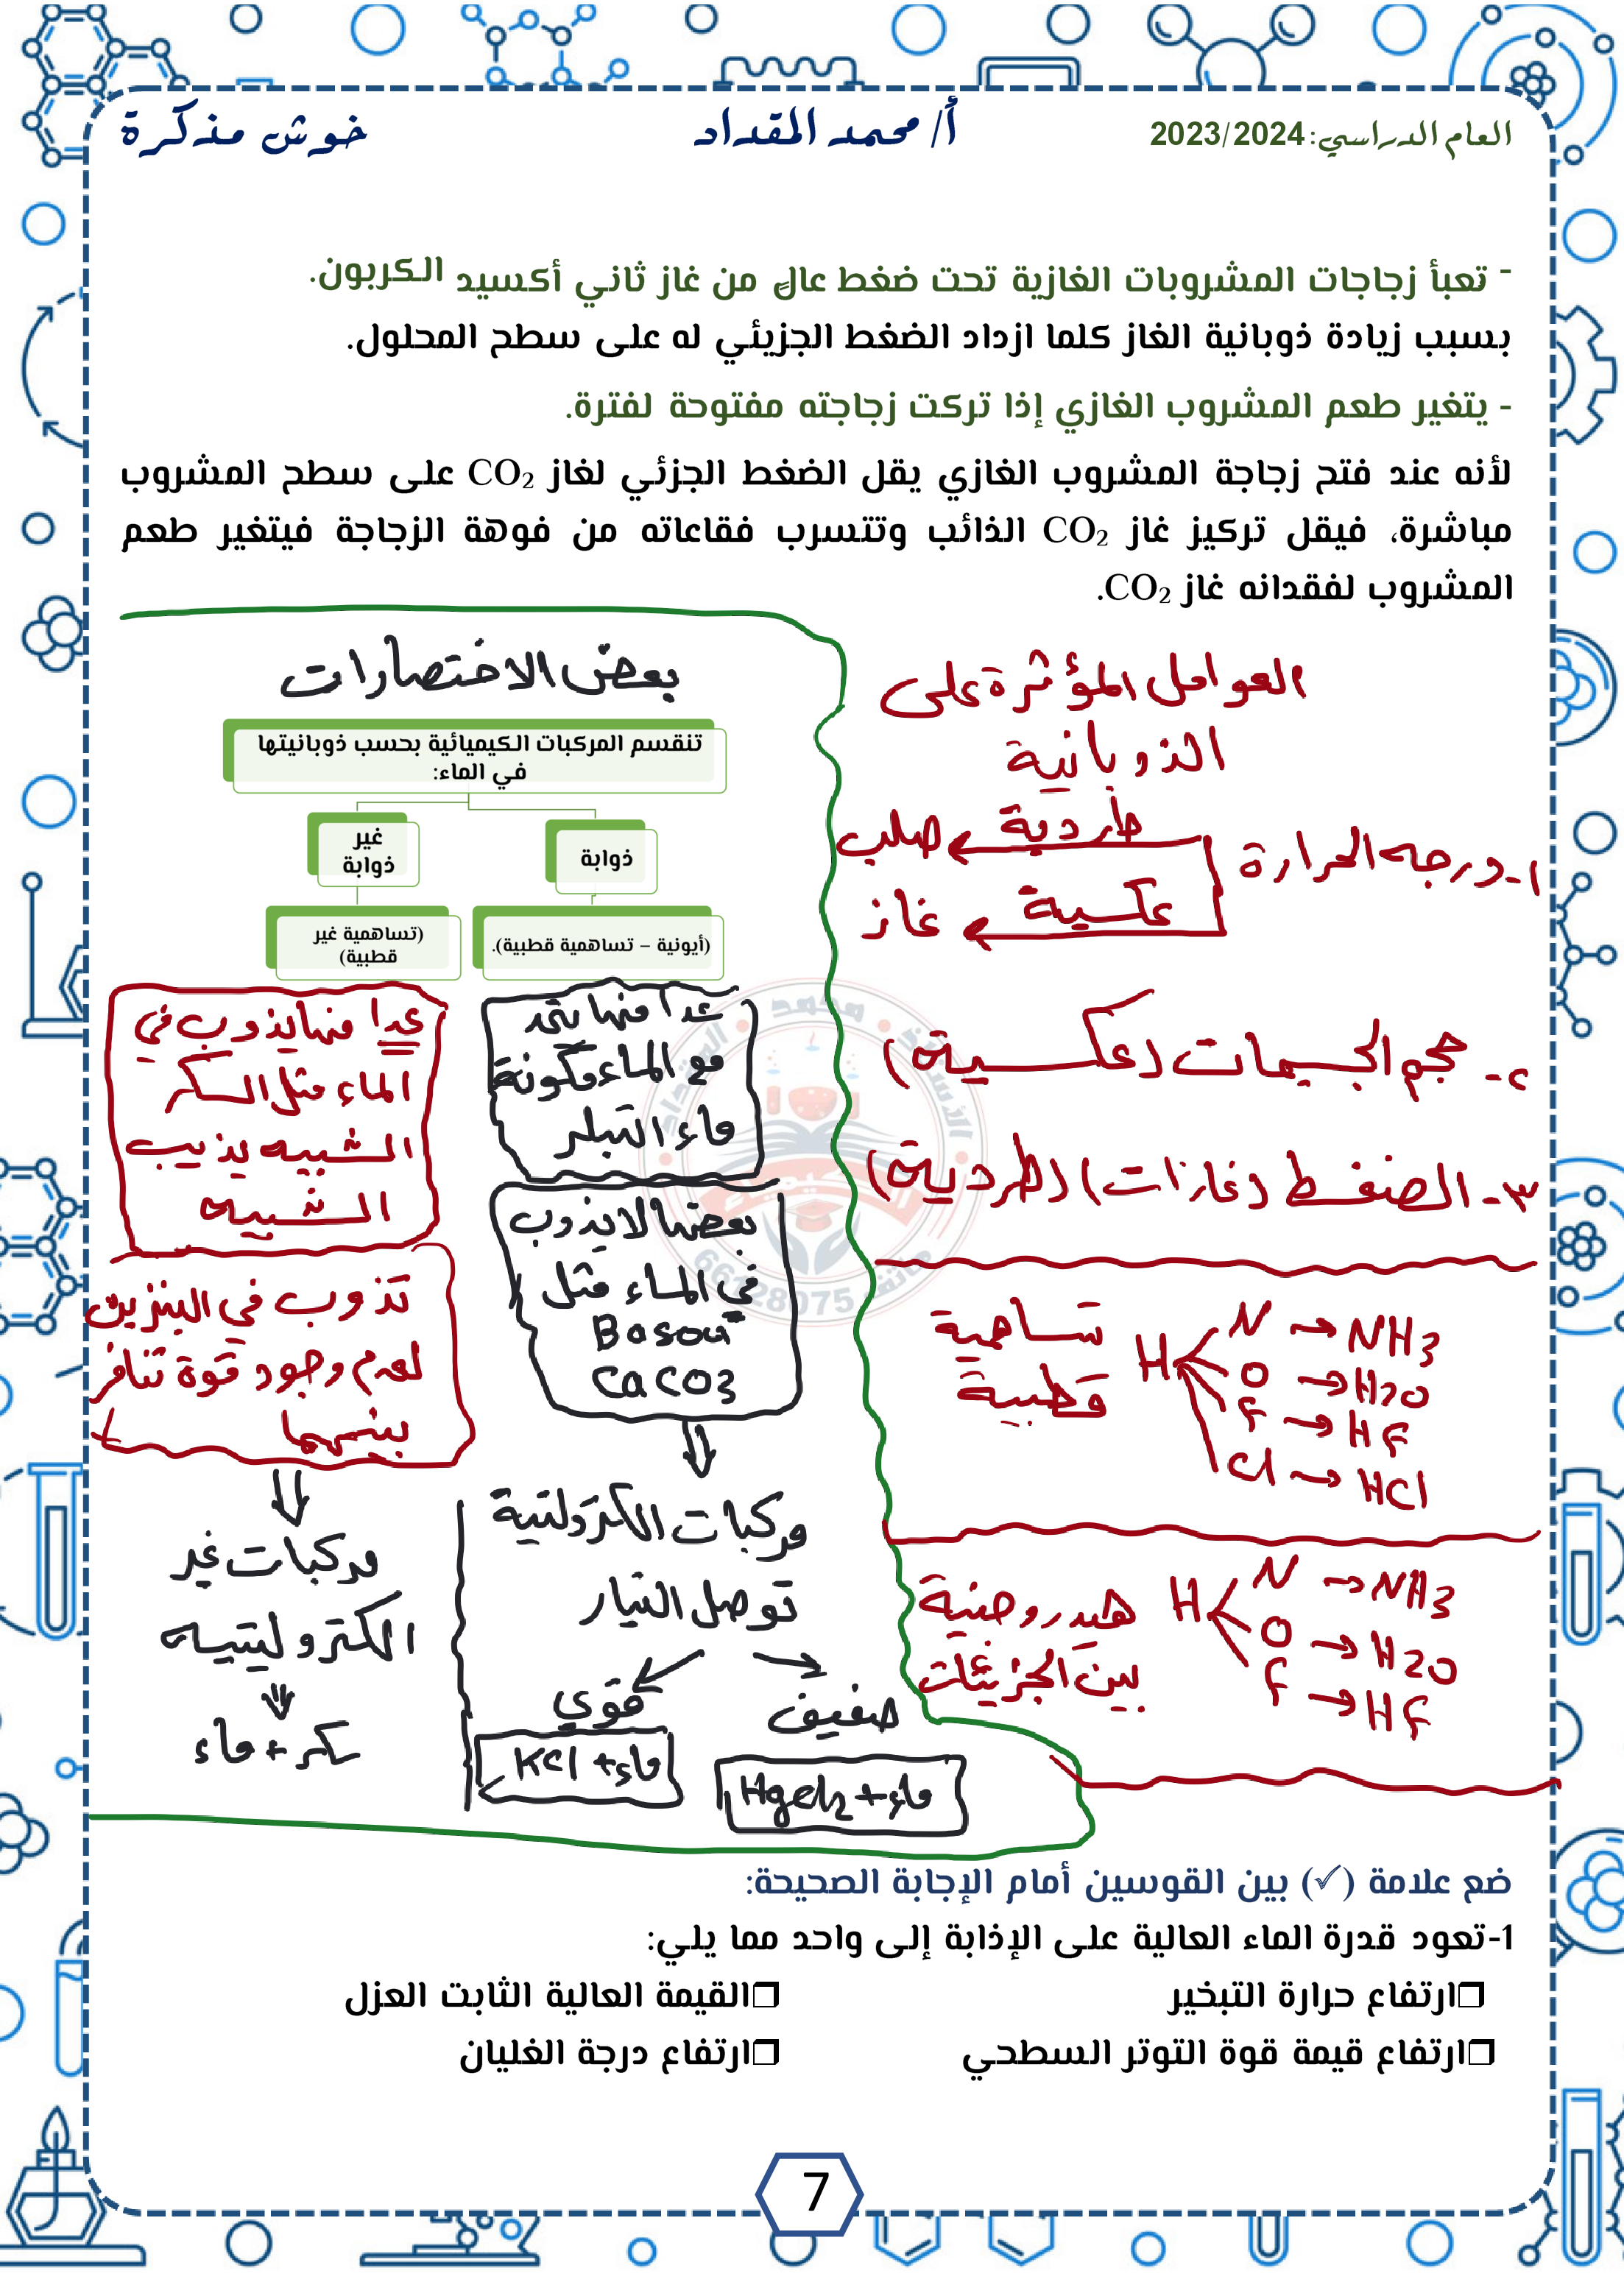 العام الدراسي: 2023/2024
أ/ محمد المقداد
خوش مذكرة
- تعبأ زجاجات المشروبات الغازية تحت ضغط عالٍ من غاز ثاني أكسيد الكربون.
بسبب زيادة ذوبانية الغاز كلما ازداد الضغط الجزيئي له على سطح المحلول.
- يتغير طعم المشروب الغازي إذا تركت زجاجته مفتوحة لفترة.
لأنه عند فتح زجاجة المشروب الغازي يقل الضغط الجزئي لغاز CO₂ على سطح المشروب
مباشرة، فيقل تركيز غاز CO₂ الذائب وتتسرب فقاعاته من فوهة الزجاجة فيتغير طعم
المشروب لفقدانه غاز CO₂.
العوامل المؤثرة على
الذوبانية
١- درجه الحرارة
طردية صلب
عكسية غاز
٢- حجم الجسيمات (عكسية)
٣- الضغط (غازات) (طردية)
تساهمية
قطبية
H
N → NH3
O → H2O
F → HF
Cl → HCl
هيدروجينية
بين الجزيئات
H
N → NH3
O → H2O
F → HF
بعض الاختصارات
تنقسم المركبات الكيميائية بحسب ذوبانيتها
في الماء:
ذوابة
غير
ذوابة
(أيونية – تساهمية قطبية).
(تساهمية غير
قطبية)
عدا منها يتحد
مع الماء مكونة
ماء التبلر
بعضها لا يذوب
في الماء مثل
BaSO4
CaCO3
مركبات الكترولتية
توصل التيار
ضعيف
قوي
HgCl2 + ماء
KCl + ماء
عدا منها يذوب في
الماء مثل السكر
الشبيه يذيب
الشبيه
تذوب في البنزين
لعدم وجود قوة تنافر
بينهما
مركبات غير
الكتروليتيه
سكر + ماء
ضع علامة (✓) بين القوسين أمام الإجابة الصحيحة:
1-تعود قدرة الماء العالية على الإذابة إلى واحد مما يلي:
❒ارتفاع حرارة التبخير
❒القيمة العالية الثابت العزل
❒ارتفاع قيمة قوة التوتر السطحي
❒ارتفاع درجة الغليان
7